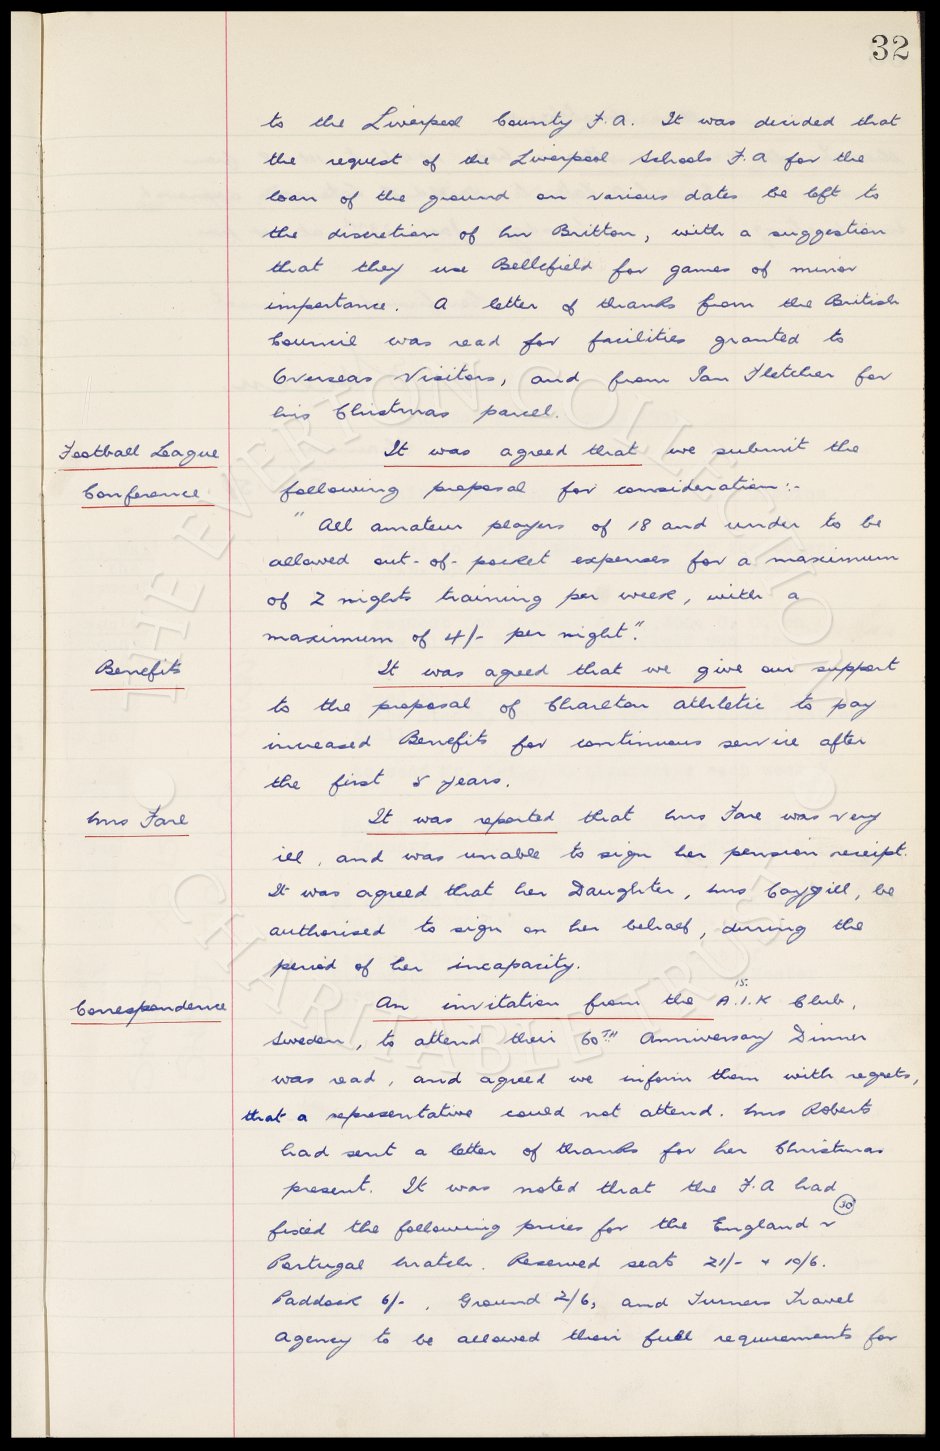 32
to the Liverpool County F.A. It was decided that
the request of the Liverpool Schools F.A for the
loan of the ground on various dates be left to
the discretion of Mr Britton, with a suggestion
that they use Bellefield for games of minor
importance. A letter of thanks from the British
Council was read for facilities granted to
Overseas Visitors, and from Ian Fletcher for
his Christmas parcel.
Football League It was agreed that we submit the
Conference following proposal for consideration:-
"All amateur players of 18 and under to be
allowed out-of-pocket expenses for a maximum
of 2 nights training per week, with a
maximum of 4/- per night".
Benefits It was agreed that we give our support
to the proposal of Charlton Athletic to pay
increased Benefits for continuous service after
the first 5 years.
Mrs Fare It was reported that Mrs Fare was very
ill, and was unable to sign her pension receipt.
It was agreed that her Daughter, Mrs Caygill, be
authorised to sign on her behalf, during the
period of her incapacity.
Correspondence An invitation from the A.I.K Club,
Sweden, to attend their 60TH Anniversary Dinner
was read, and agreed we inform them with regrets,
that a representative could not attend. Mrs Roberts
had sent a letter of thanks for her Christmas
present. It was noted that the F.A had
fixed the following prices for the England v
30
Portugal Match. Reserved seats 21/- + 10/6.
Paddock 6/-, Ground 2/6, and Turners Travel
Agency to be allowed their full requirements for
THE EVERTON COLLECTION
CHARITABLE TRUST